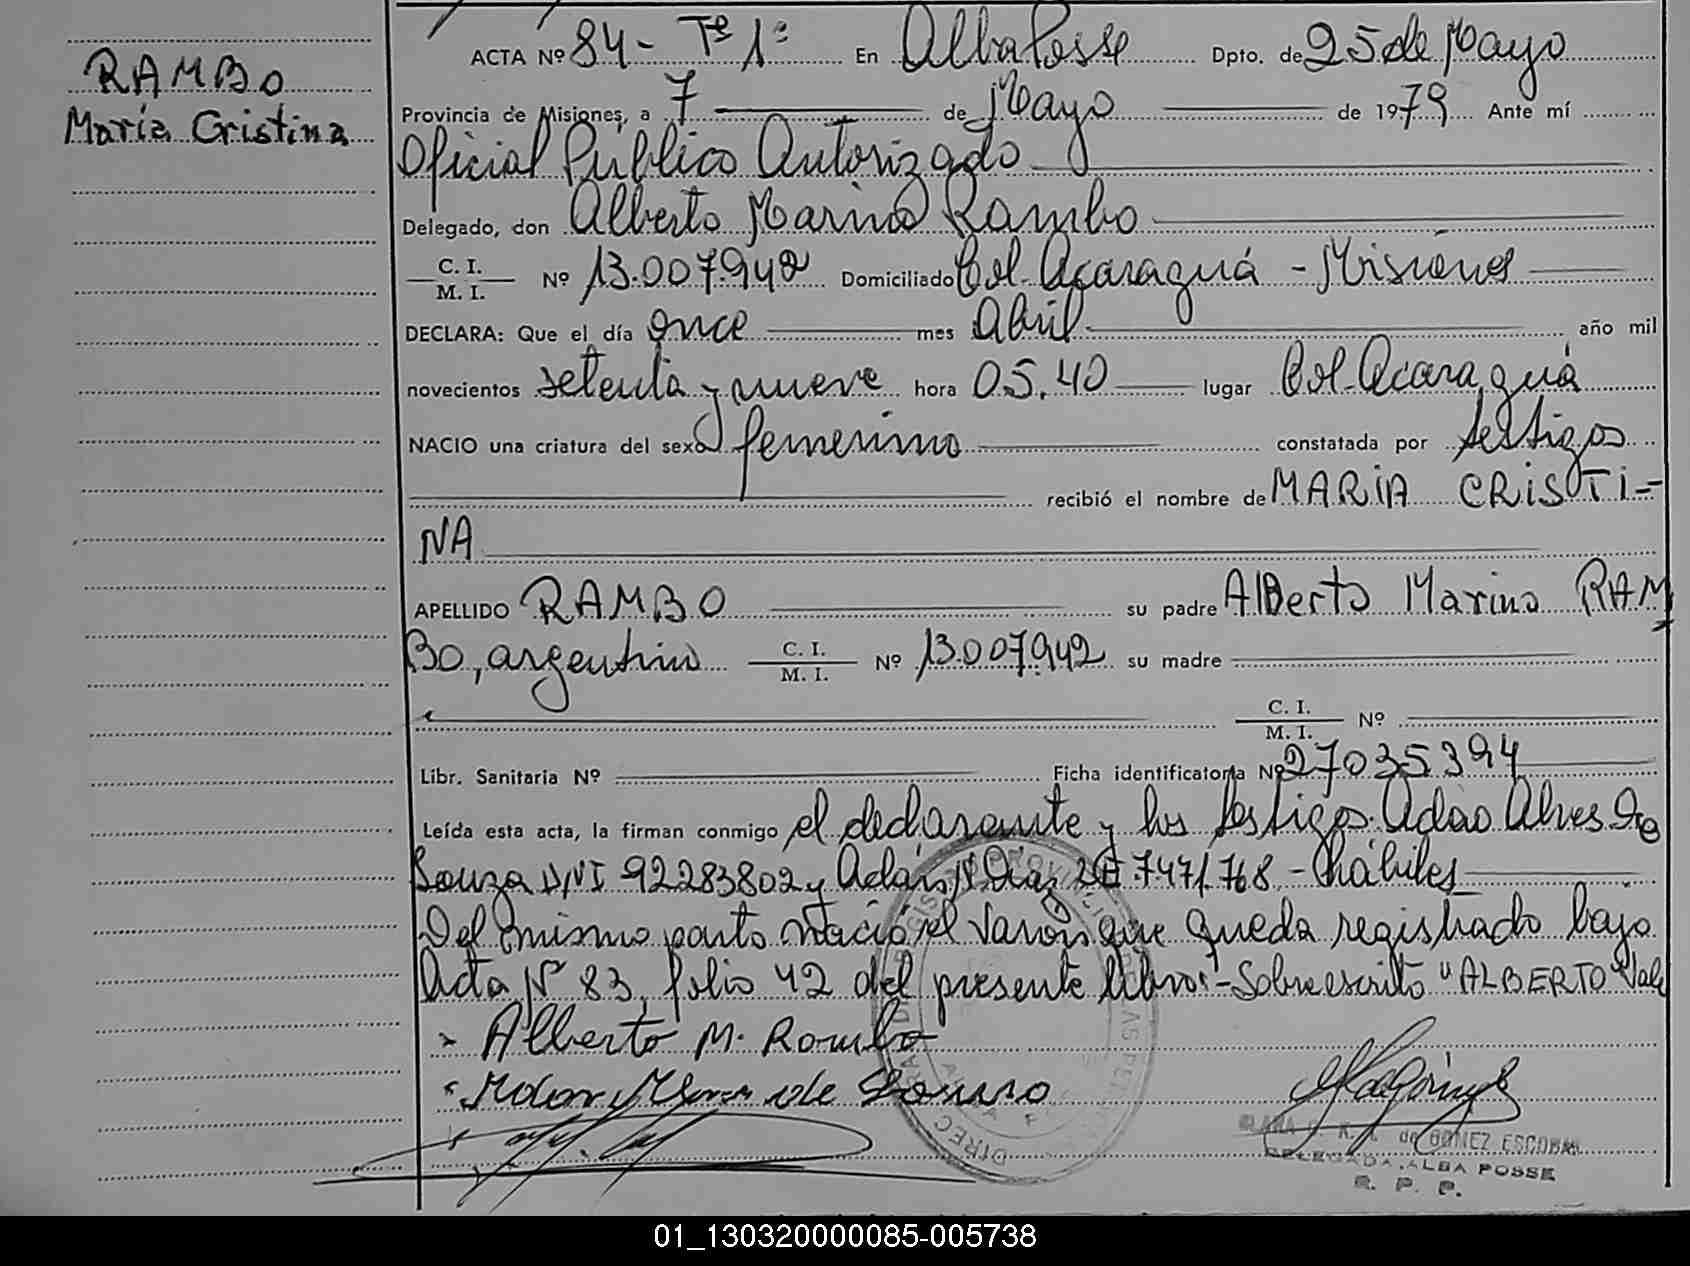 RAMBO
María Cristina
ACTA Nº 84 - Tº 1º En Alba Posse Dpto. de 25 de Mayo
Provincia de Misiones, a 7 de Mayo de 1979 Ante mí
Oficial Público Autorizado
Delegado, don Alberto Marino Rambo
C. I.
M. I. Nº 13.007.942 Domiciliado Col. Acaraguá - Misiones
DECLARA: Que el día once mes Abril año mil
novecientos setenta y nueve hora 05.40 lugar Col. Acaraguá
NACIO una criatura del sexo femenino constatada por testigos
recibió el nombre de MARIA CRISTI-
NA
APELLIDO RAMBO su padre Alberto Marino RAM
BO, argentino C. I.
M. I. Nº 13.007.942 su madre
C. I.
M. I. Nº
Libr. Sanitaria Nº Ficha identificatoria Nº 27035394
Leída esta acta, la firman conmigo el declarante y los testigos: Adao Alves De
Souza DNI 92283802 y Adán Díaz 7471768 - Hábiles
Del mismo parto nació el varón que queda registrado bajo
Acta Nº 83, folio 42 del presente libro: - Sobreescrito "ALBERTO" Vale
Alberto M. Rambo
de
de GOMEZ ESCOBAR
DELEGADA ALBA POSSE
R. P. P.
01_130320000085-005738